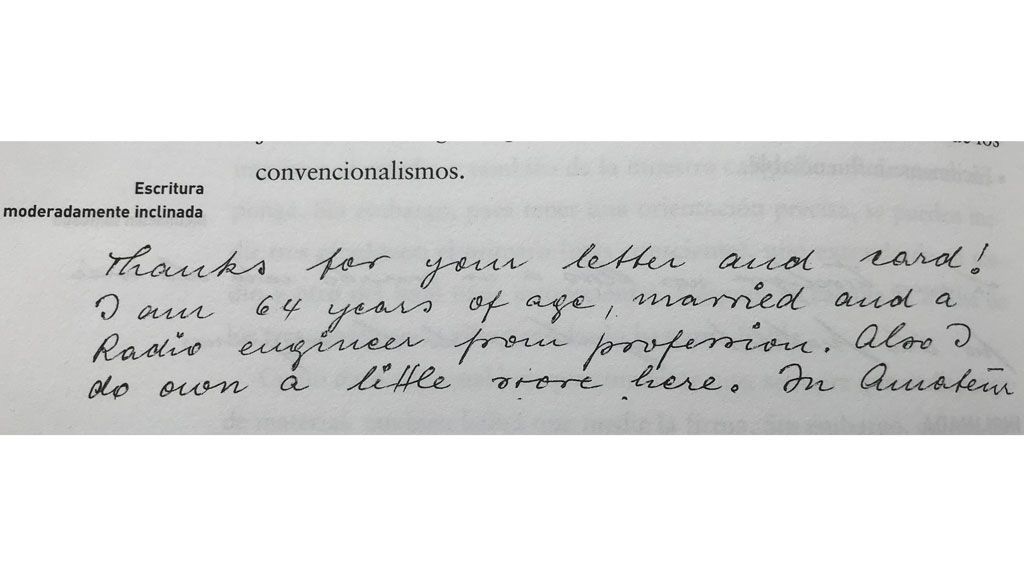 de los
convencionalismos.
Escritura
moderadamente inclinada
Thanks for your letter and card!
I am 64 years of age, married and a
Radio engineer from profession. Also I
do own a little store here. In Amateur